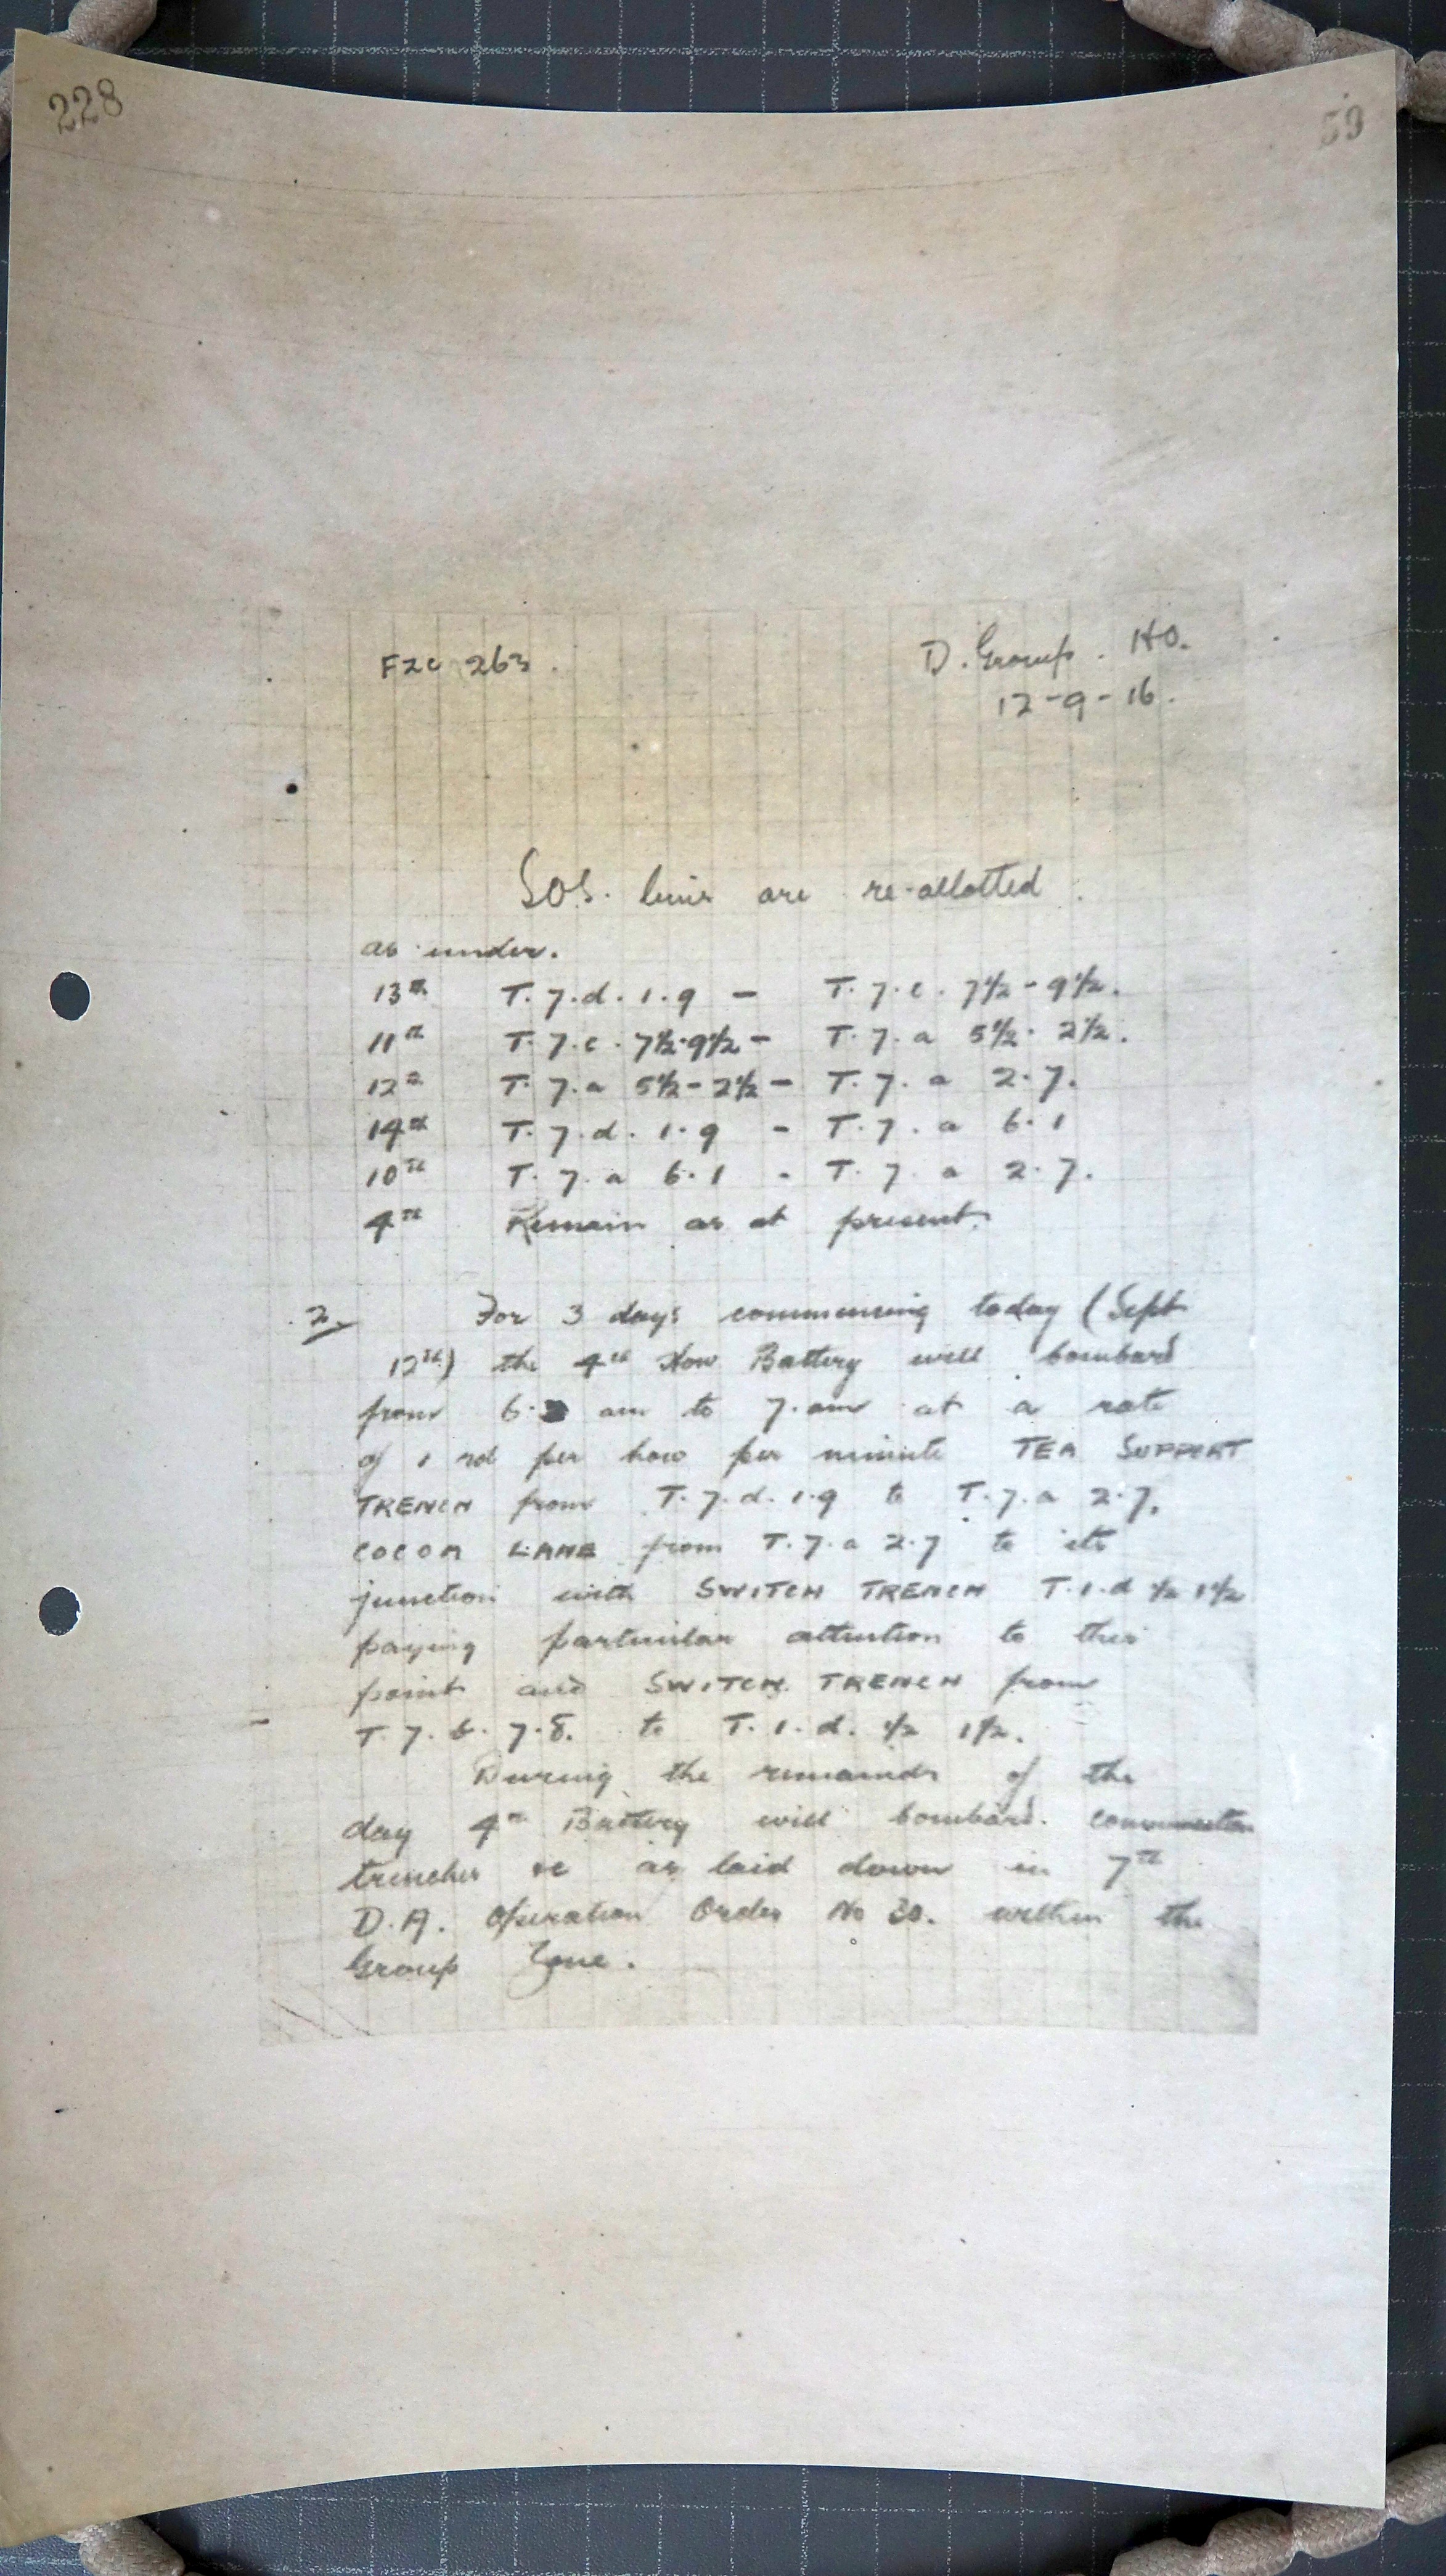 228
59
FZC 263.
D. Group. HQ.
12-9-16.
S.O.S. lines are re-allotted
as under.
13th T.7.d.1.9 - T.7.c.7½-9½.
11th T.7.c.7½.9½ - T.7.a 5½.2½.
12th T.7.a 5½-2½ - T.7.a 2.7.
14th T.7.d.1.9 - T.7.a 6.1
10th T.7.a 6.1 - T.7.a 2.7.
4th Remain as at present.
2. For 3 days commencing today (Sept
12th) the 4th How Battery will bombard
from am to 7.am at a rate
of 1 rd per how per minute TEA SUPPORT
TRENCH from T.7.d.1.9 to T.7.a 2.7.
COCOA LANE from T.7.a 2.7 to its
junction with SWITCH TRENCH T.1.d ½ 1½
paying particular attention to this
point and SWITCH TRENCH from
T.7.b.7.8. to T.1.d. ½ 1½.
During the remainder of the
day 4th Battery will bombard.
trenches &c as laid down in 7th
D.A. Operation Order No within the
Group Zone.